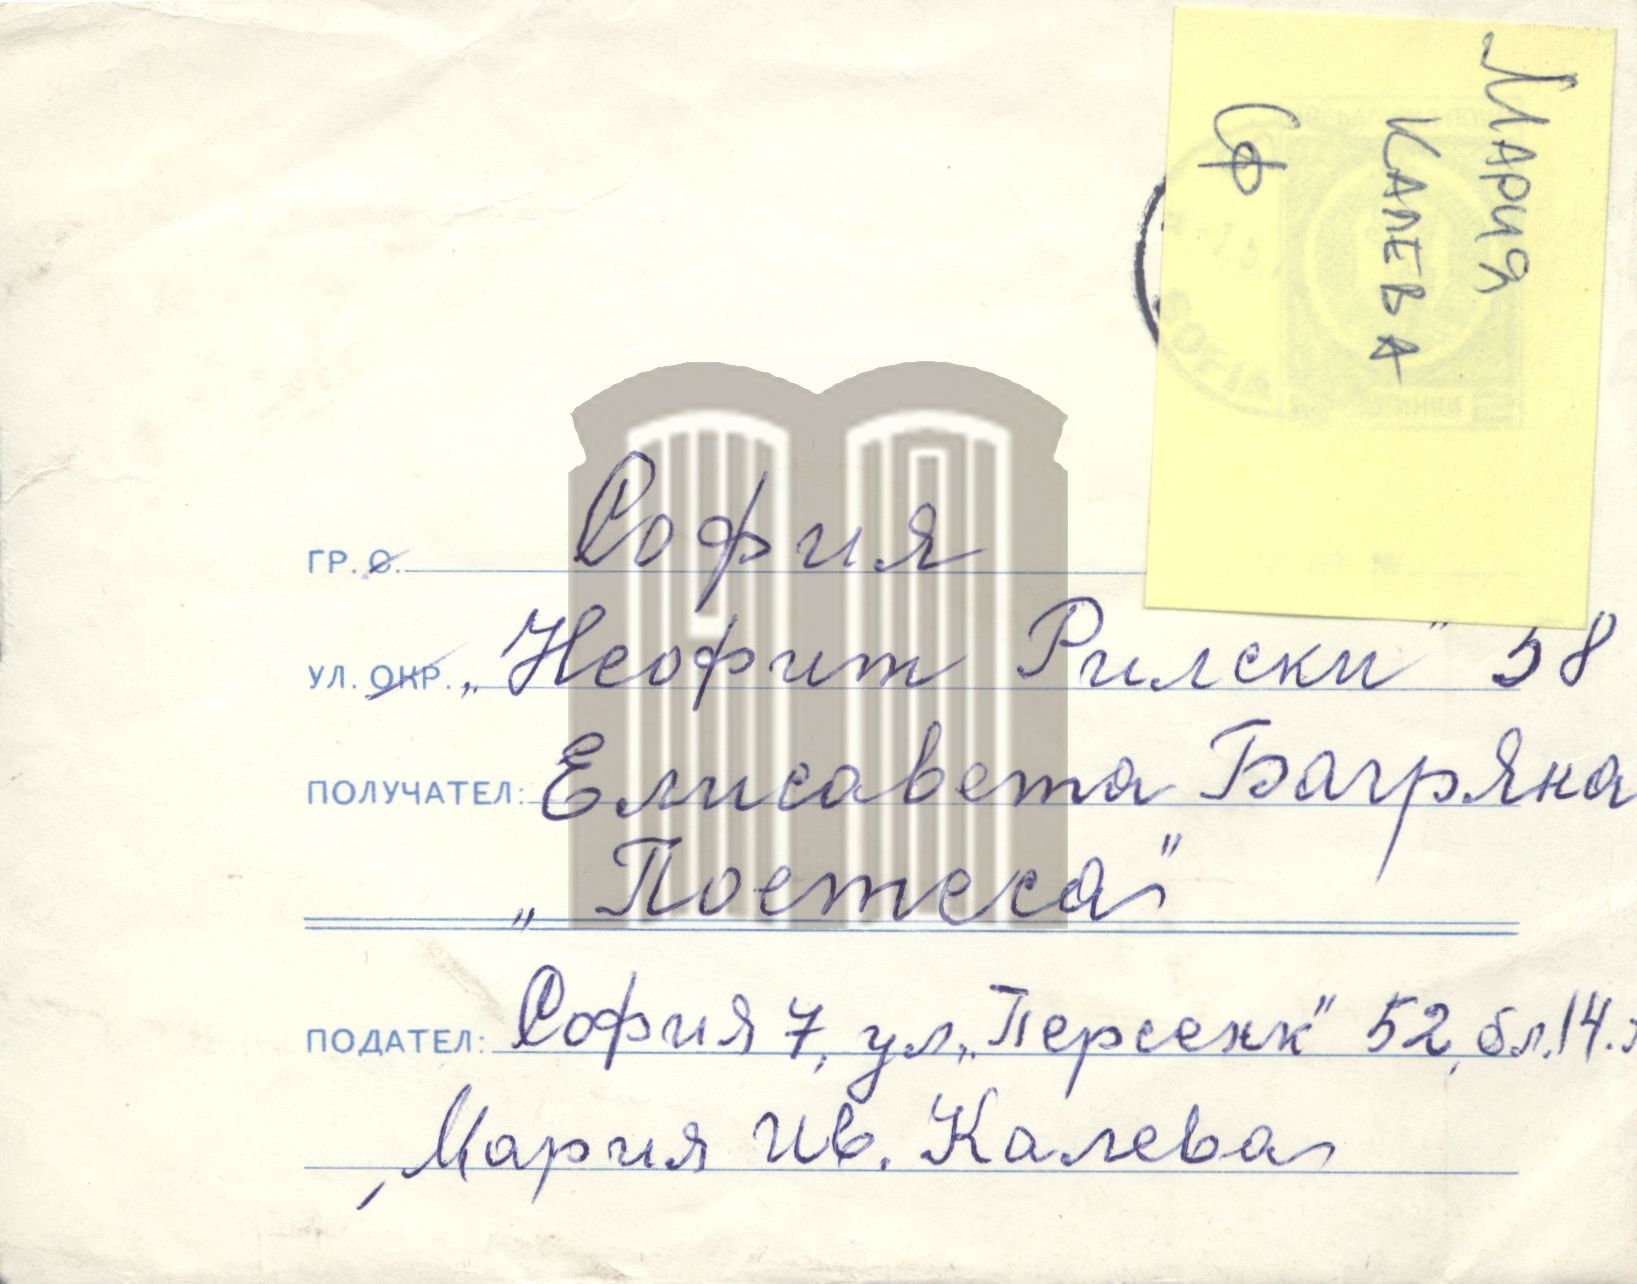 Мария
Калева
Сф
SOFIA
ГР. С. София
УЛ. ОКР. „Неофит Рилски" 58
ПОЛУЧАТЕЛ: Елисавета Багряна
„Поетеса"
ПОДАТЕЛ: София 7, ул. „Персенк" 52, бл. 14.
Мария Ив. Калева